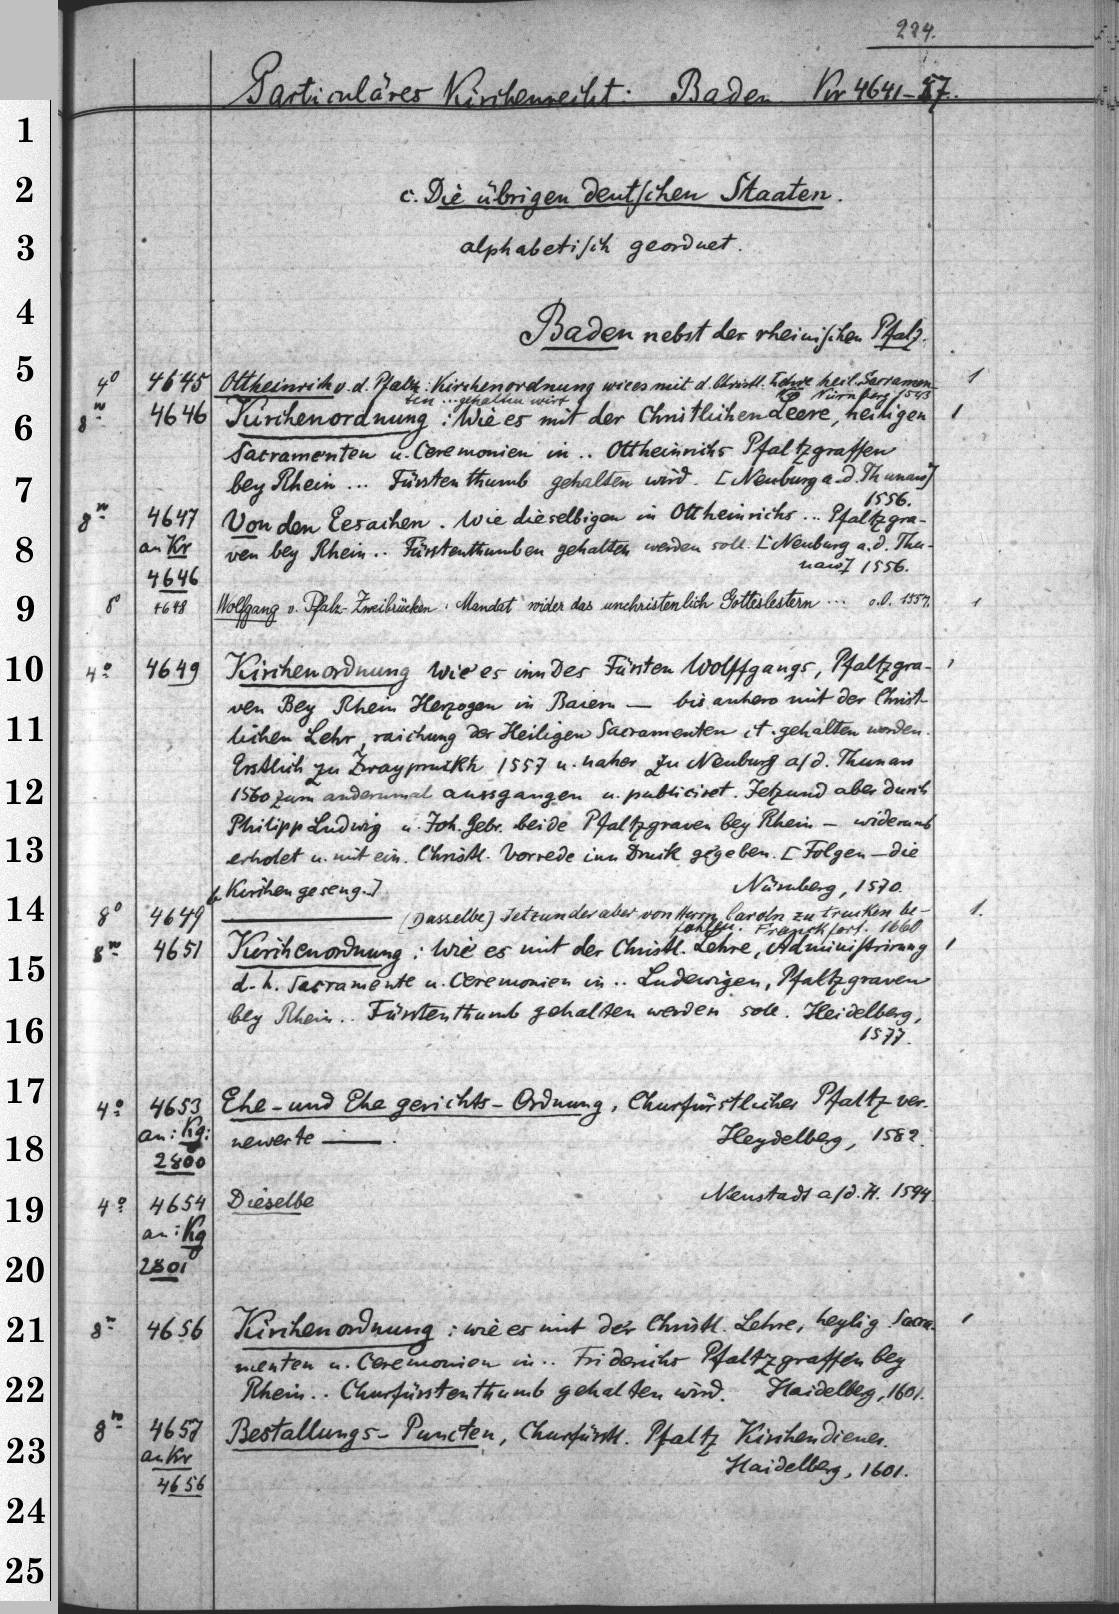 224.
Particuläres Kirchenrecht: Baden Kr 4641-57.
1
2 c. Die übrigen deutschen Staaten.
3 alphabetisch geordnet.
4
Baden nebst der rheinischen Pfalz.
5 4° 4645 Ottheinrich v. d. Pfalz: Kirchenordnung wie es mit d. Christl. Lehre heil. Sacramen- 1
ten ... gehalten wirt Nürnberg 1543
6 8° 4646 Kirchenordnung: Wie es mit der Christlichen Leere, heiligen 1
Sacramenten u. Ceremonien in .. Ottheinrichs Pfaltzgraffen
7 bey Rhein ... Fürstenthumb gehalten wird. [Neuburg a. d. Thunaw]
1556.
8° 4647 Von den Eesachen. Wie dieselbigen in Ottheinrichs ... Pfaltzgra-
8 an Kr ven bey Rhein .. Fürstenthumben gehalten werden soll. [Neuburg a. d. Thu-
4646 naw] 1556.
9 8° 4648 Wolfgang v. Pfalz-Zweibrücken: Mandat wider das unchristenlich Gotteslestern ... o.O. 1557. 1
10 4° 4649 Kirchenordnung wie es inn des Fürsten Wolffgangs, Pfaltzgra- 1
ven Bey Rhein Herzogen in Baiern — bis anhero mit der Christ-
11 lichen Lehr, raichung der Heiligen Sacramenten it. gehalten worden.
Erstlich zu Zwaypruckh 1557 u. naher zu Neuburg a/d. Thunau
12 1560 zum anderumal aussgangen u. publiciret. Jetzund aber durch
Philipp Ludwig u. Joh. Gebr. beide Pfaltzgraven bey Rhein — widerumb
13 erholet u. mit ein. Christl. Vorrede inn Druck gegeben. [Folgen — die
Kirchengeseng.] Nürnberg, 1570.
14 8° 4649 b ——— [Dasselbe] Jetzunder aber von Herrn Caroln zu trucken be- 1.
fohlen. Franckfort. 1660
8° 4651 Kirchenordnung: Wie es mit der Christl. Lehre, Administrirung 1
15 d. h. Sacramente u. Ceremonien in .. Ludewigen, Pfaltzgraven
16 bey Rhein .. Fürstenthumb gehalten werden soll. Heidelberg,
1577.
17 4° 4653 Ehe- und Ehegerichts-Ordnung, Churfürstlicher Pfaltz ver-
18 an: Kg: newerte ——. Heydelberg, 1582.
2800
19 4° 4654 Dieselbe Neustadt a/d. H. 1594
an: Kg
20 2801
21 8° 4656 Kirchenordnung: wie es mit der Christl. Lehre, heylig Sacra- 1
menten u. Ceremonien in .. Friderichs Pfaltzgraffen bey
22 Rhein .. Churfürstenthumb gehalten wird. Haidelberg, 1601.
8° 4657 Bestallungs-Puncten, Churfürstl. Pfaltz Kirchendiener.
23 an Kr Haidelberg, 1601.
4656
24
25